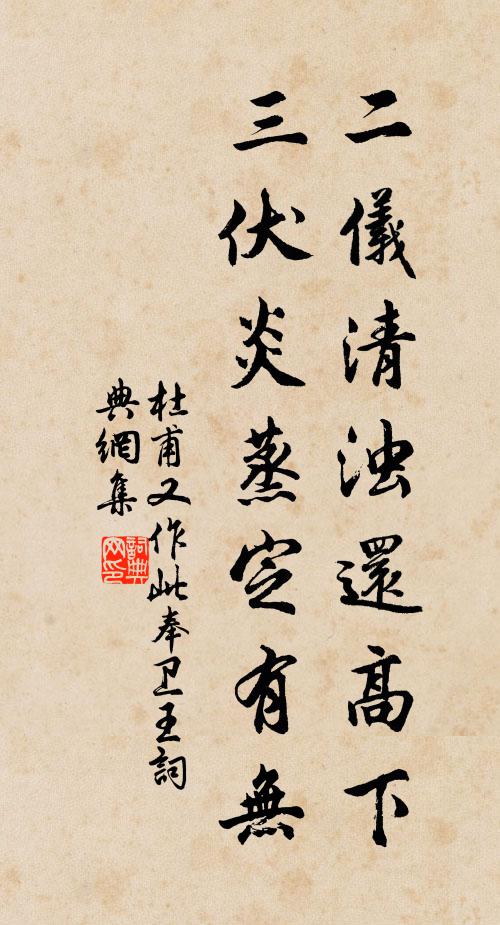 二儀清浊還高下
三伏炎蒸定有無
杜甫又作此奉卫王詞
典網集
詞典网印